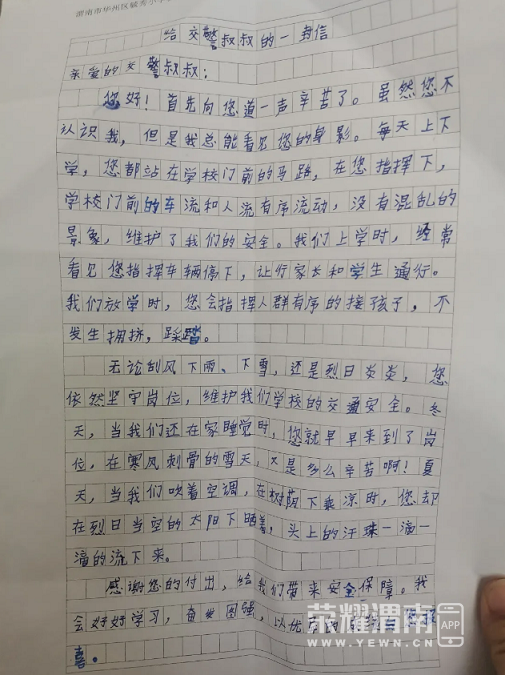 渭南市华州区
给交警叔叔的一封信
亲爱的交警叔叔：
您好！首先向您道一声辛苦了。虽然您不
认识我，但是我总能看见您的身影。每天上下
学，您都站在学校门前的马路，在您指挥下，
学校门前的车流和人流有序流动，没有混乱的
景象，维护了我们的安全。我们上学时，经常
看见您指挥车辆停下，让行家长和学生通行。
我们放学时，您会指挥人群有序的接孩子，不
发生拥挤，踩踏。
无论刮风下雨、下雪，还是烈日炎炎，您
依然坚守岗位，维护我们学校的交通安全。冬
天，当我们还在家睡觉时，您就早早来到了岗
位，在寒风刺骨的雪天，又是多么辛苦啊！夏
天，当我们吹着空调，在树荫下乘凉时，您却
在烈日当空的太阳下晒着，头上的汗珠一滴一
滴的流下来。
感谢您的付出，给我们带来安全保障。我
会好好学习，奋发图强，以优
喜。
荣耀渭南APP
WWW.YEWN.CN